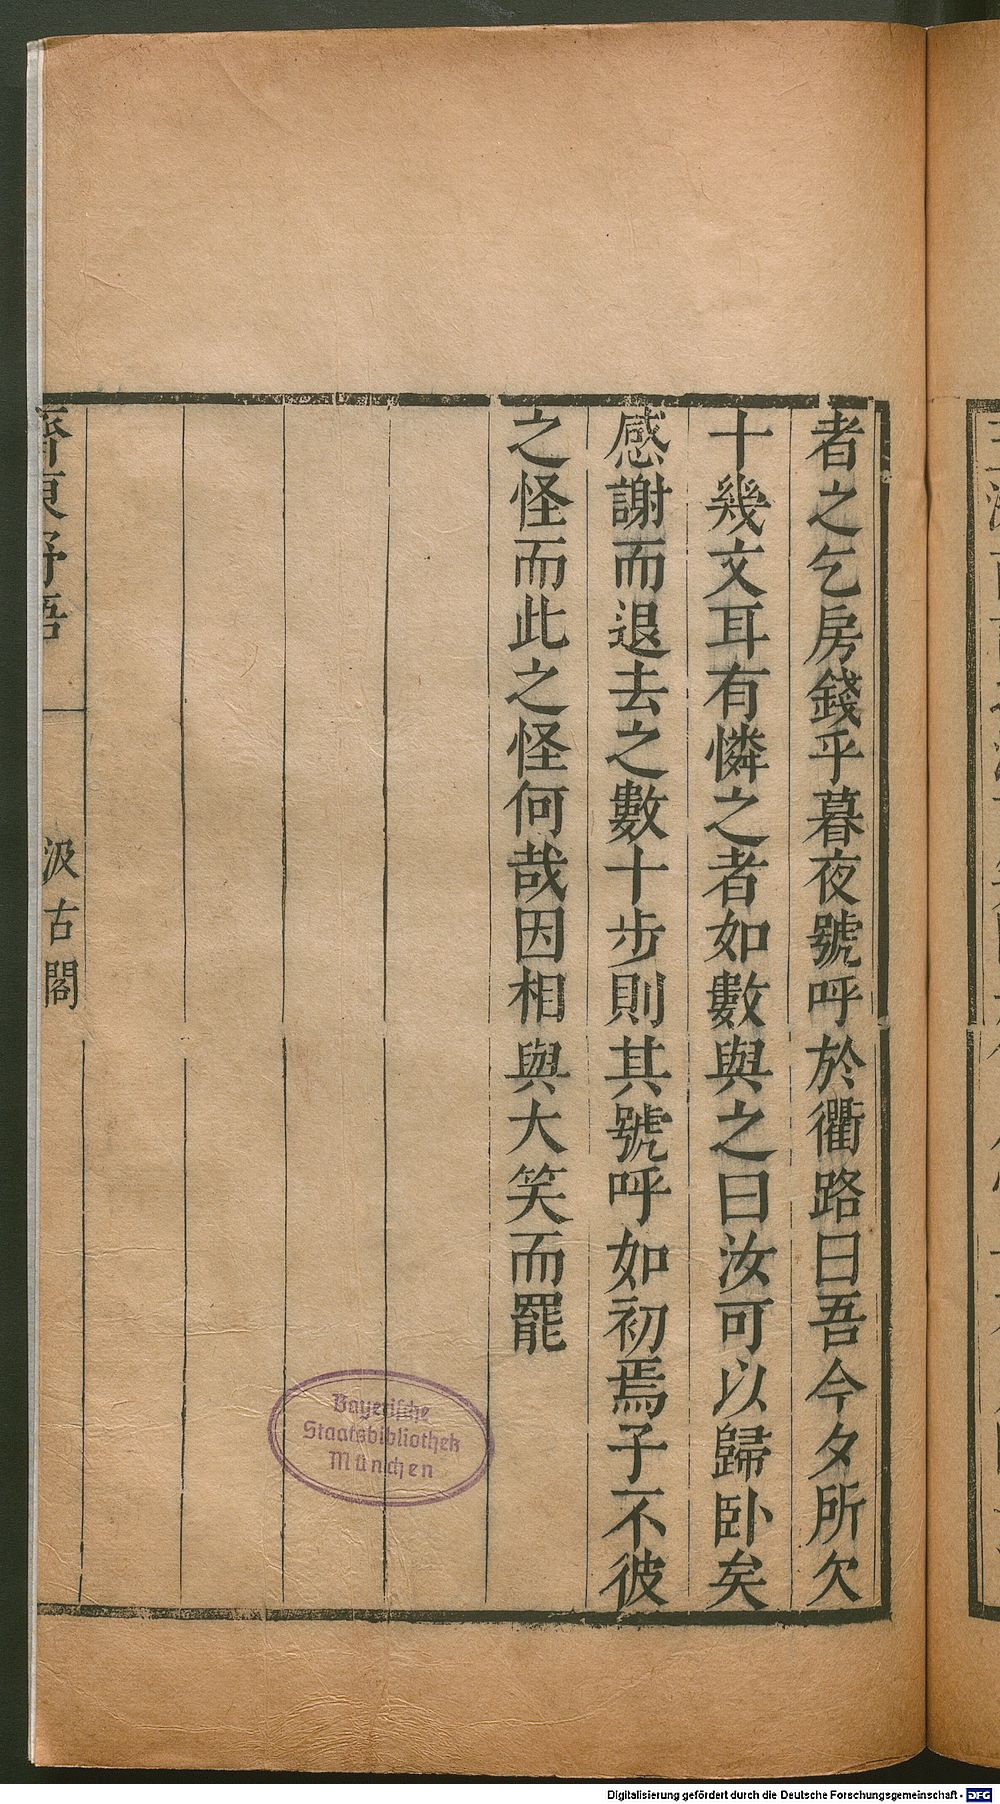 者之乞房錢乎暮夜號呼於衢路曰吾今夕所欠
十幾文耳有憐之者如數與之曰汝可以歸臥矣
感謝而退去之數十步則其號呼如初焉子不彼
之怪而此之怪何哉因相與大笑而罷
齊東野語
汲古閣
Bayerische
Staatsbibliothek
München
Digitalisierung gefördert durch die Deutsche Forschungsgemeinschaft - DFG